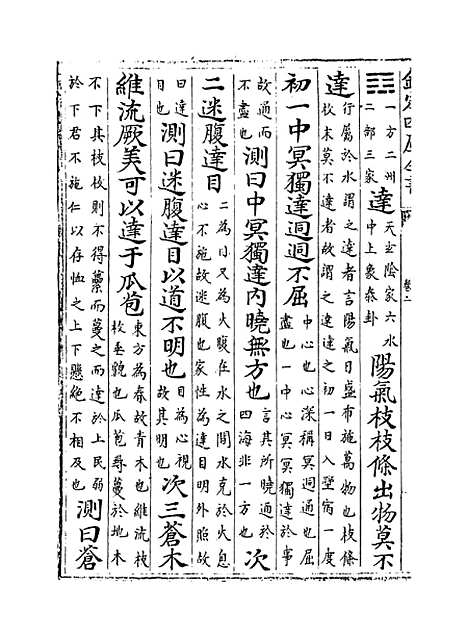 欽定四庫全書
一方二州二部三家達天玄陰家六水中上象泰卦陽氣枝枝條出物莫不
達行屬於水謂之達者言陽氣日盛布施萬物也枝條枚末莫不達者故謂之達達之初一日入壁宿一度
初一中冥獨達迵迵不屈中心也心深稱冥迵通也屈盡也一中心冥冥獨達於事
故通而不盡也測曰中冥獨達內曉無方也言其所曉通於四海非一方也次
二迷腹達目二為目又為火腹在水之間水克於火息心不施故迷腹也家性為達目明外照故
曰達目也測曰迷腹達目以道不明也目為心視故其明也次三蒼木
維流厥美可以達于瓜苞東方為春故青木也維流枝枚垂貌也瓜苞尋蔓於地木
不下其枝枚則不得虆而蔓之而達於上民弱於下君不施仁以存恤之上下懸絕不相及也測曰蒼